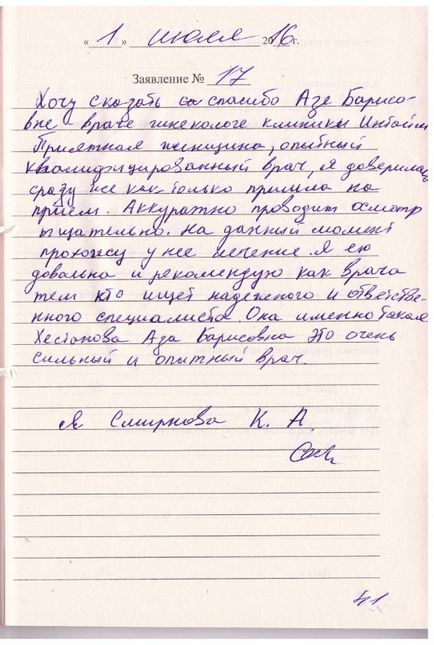 « 1 » июля 2016г.
Заявление № 17
Хочу сказать спасибо Азе Барисо-
вне – враче гинекологе клиники Интайм
Приятная женщина, опытный
квалифицированный врач, я доверилась
сразу же как только пришла на
приём. Аккуратно проводит осмотр
тщательно. На данный момент
прохожу у нее лечение. Я ею
довальна и рекомендую как врача
тем кто ищет надежного и ответстве-
нного специалиста. Она именно такая
Хестанова Аза Барисовна Это очень
сильный и опытный врач.
Я Смирнова К. А.
41